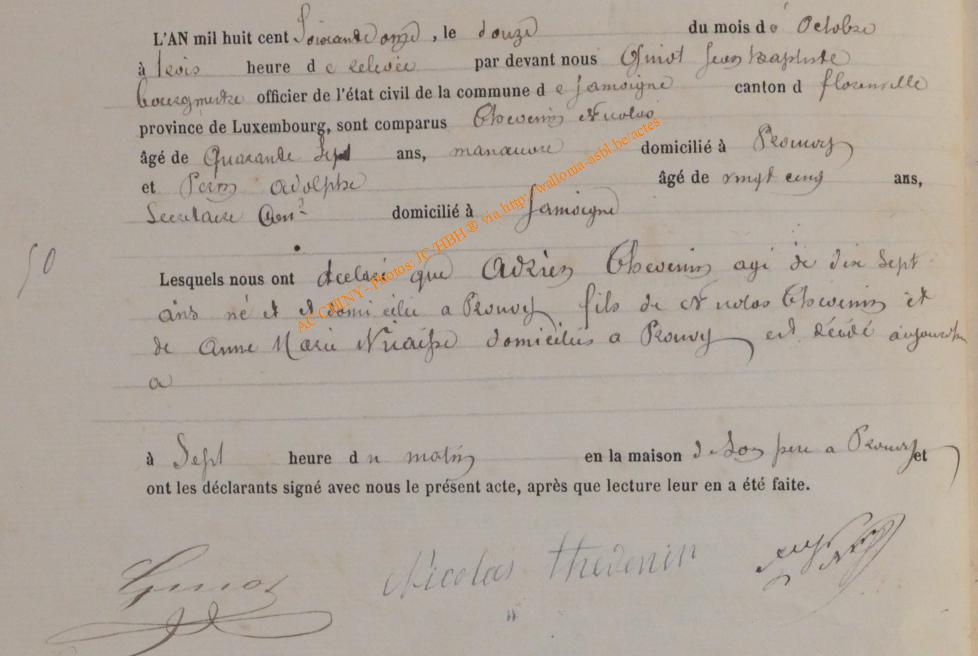 L'AN mil huit cent Soixante onze, le douze du mois de Octobre
à trois heure de relevée par devant nous Guiot Jean Baptiste
bourgmestre officier de l'état civil de la commune de Jamoigne canton d florenville
province de Luxembourg, sont comparus Thevenin Nicolas
âgé de Quarante Sept ans, manœuvre domicilié à Prouvy
et Perin Adolphe âgé de vingt cinq ans,
Secrétaire Com.l domicilié à Jamoigne
50
Lesquels nous ont declaré que Adrien Thevenin agé de dix Sept
ans né et domicilié a Prouvy fils de Nicolas Thevenin et
de Anne Marie domicilies a Prouvy est décédé aujourdhui
a
à Sept heure du matin en la maison de Son pere a Prouvy et
ont les déclarants signé avec nous le présent acte, après que lecture leur en a été faite.
Guiot Nicolas thevenin
AC CHINY - Photos: JC-HBH ® via http:/wallonia-asbl.be/actes